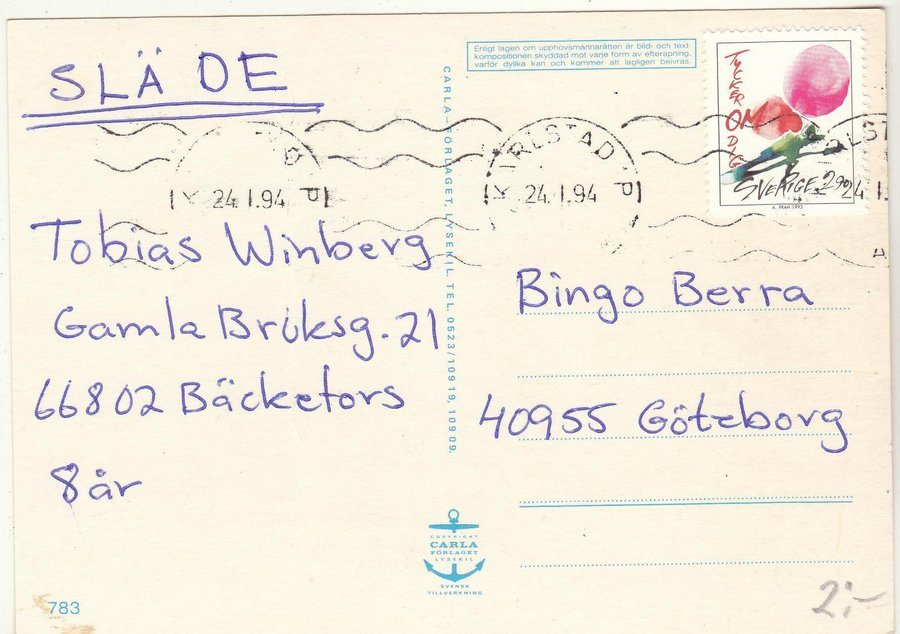 SLÄDE
Tobias Winberg
Gamla Bruksg. 21
66802 Bäckefors
8 år
783
CARLA-FÖRLAGET, LYSEKIL. TEL. 0523/109 19, 109 09.
COPYRIGHT
CARLA
FÖRLAGET
LYSEKIL
SVENSK
TILLVERKNING
Enligt lagen om upphovsmannarätten är bild- och text-
kompositionen skyddad mot varje form av efterapning,
varför dylika kan och kommer att lagligen beivras.
TYCKER
OM
DIG
SVERIGE 2.90
A. PRAH 1993
24.1.94
KARLSTAD
24.1.94
RLST
24.1.
Bingo Berra
40955 Göteborg
2:-